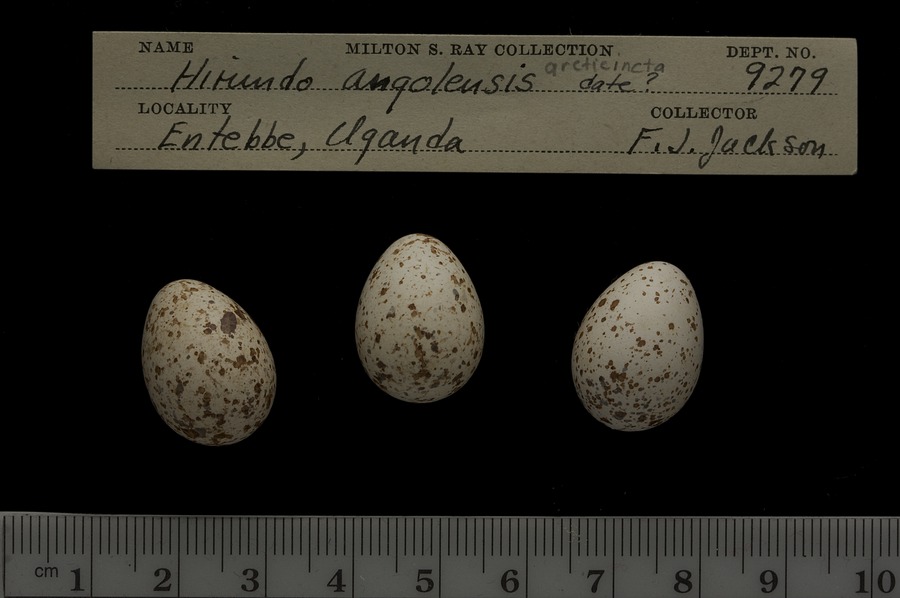 NAME MILTON S. RAY COLLECTION. DEPT. NO.
arcticincta
Hirundo angolensis date? 9279
LOCALITY COLLECTOR
Entebbe, Uganda F. J. Jackson
cm 1 2 3 4 5 6 7 8 9 10